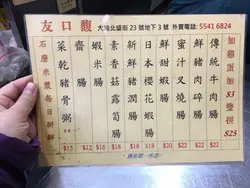 友口馥 大埔北盛街23號地下3號 外賣電話:5541 6824
加雞蛋加$3 雙拼$25
傳統牛肉腸 $22
鮮豬肉碎腸 $22
蜜汁叉燒腸 $22
鮮蝦腸 $20
日本櫻花蝦腸 $18
新菇露筍腸 $20
蝦米腸 $16
齋腸 $12
菜乾豬骨粥 $15
石磨米漿每日新鮮